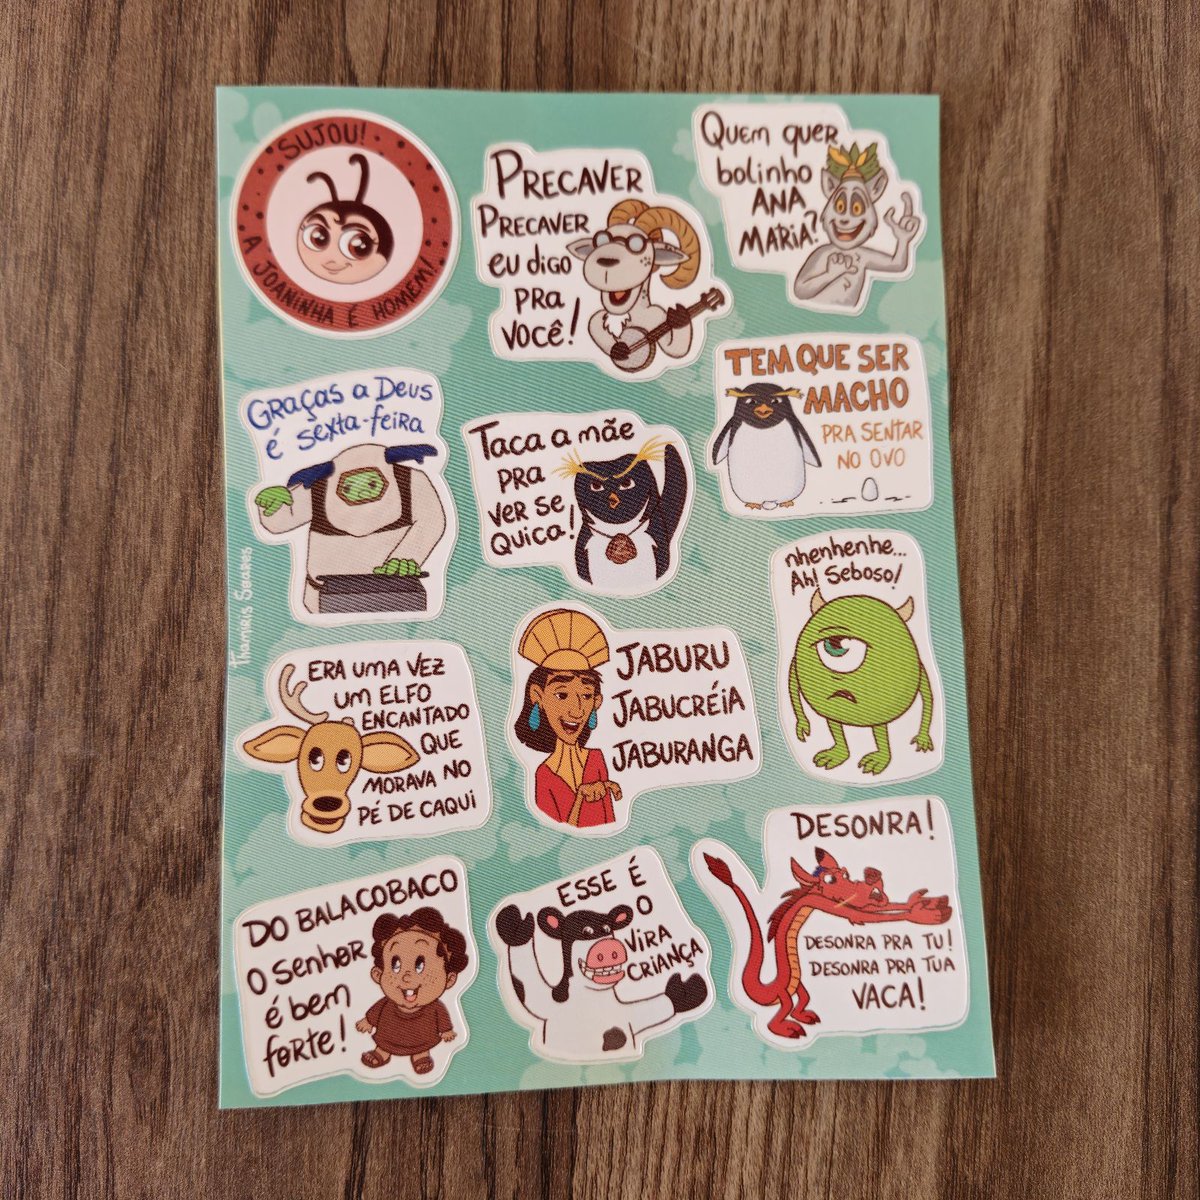 SUJOU!
A JOANINHA É HOMEM!
PRECAVER
PRECAVER
EU DIGO
PRA
VOCÊ!
QUEM QUER
bolinho
ANA
MARIA?
GRAÇAS A DEUS
é sexta-feira
TACA A mãe
PRA
VER SE
QUICA!
TEM QUE SER
MACHO
PRA SENTAR
NO OVO
nhenhenhe...
Ah! Seboso!
Thamiris Soares
ERA UMA VEZ
UM ELFO
ENCANTADO
QUE
MORAVA NO
PÉ DE CAQUI
JABURU
JABUCRÉIA
JABURANGA
DO BALACOBACO
O Senhor
é bem
forte!
ESSE É
O
VIRA
CRIANÇA
DESONRA!
DESONRA PRA TU!
DESONRA PRA TUA
VACA!